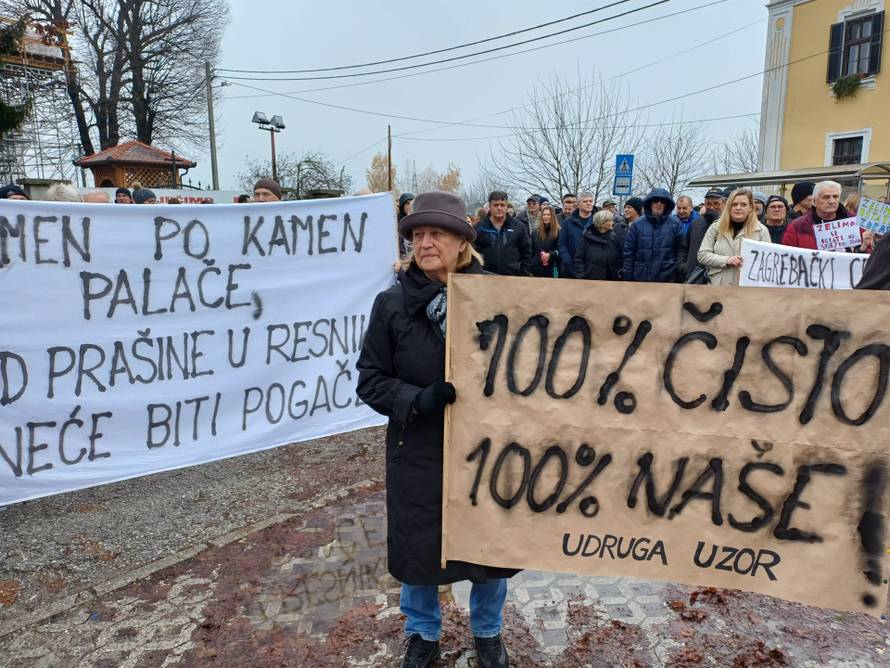 MEN PO KAMEN
PALAČE,
D PRAŠINE U RESNI
NEĆE BITI POGAČ
100% ČISTO
100% NAŠE!
UDRUGA UZOR
ZAGREBAČKI
ŽELIMO